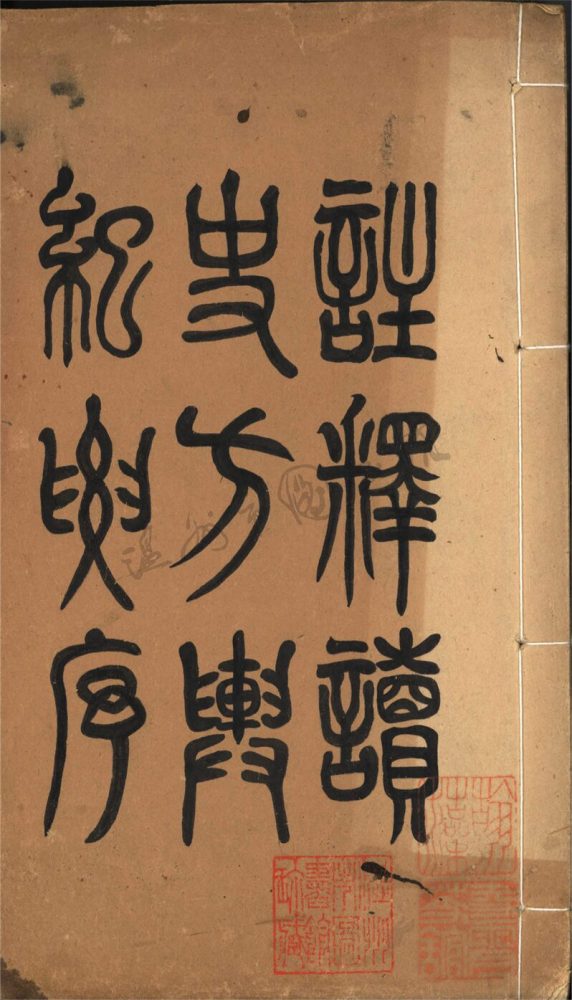 註釋讀
史方輿
紀要序